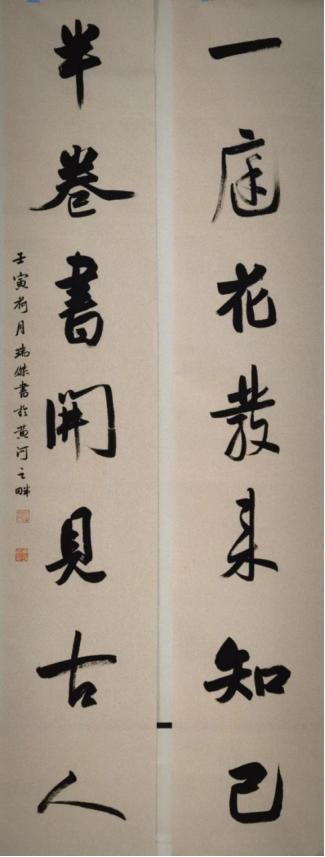 一庭花發来知己
半卷書開見古人
壬寅荷月瑞傑書於黄河之畔